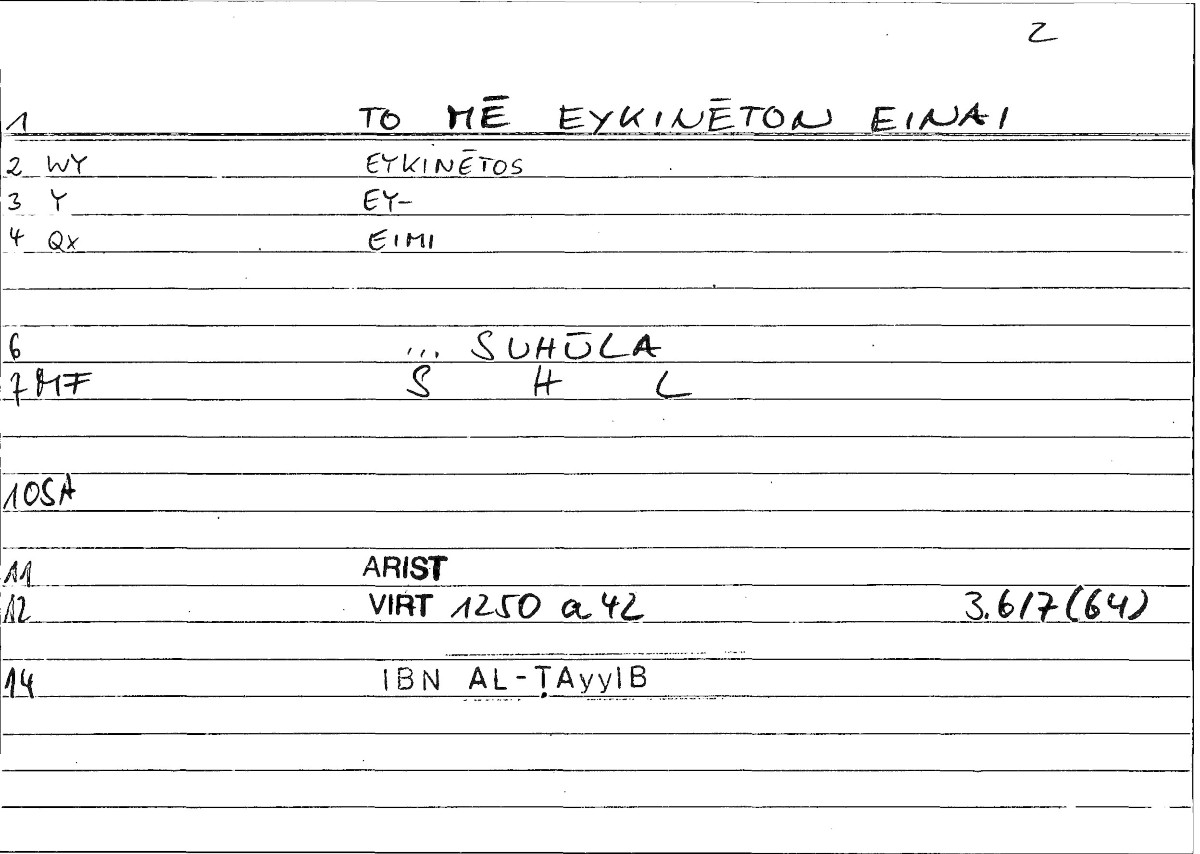 2
1 TO MĒ EYKINĒTON EINAI
2 WY EYKINĒTOS
3 Y EY-
4 Qx EIMI
6 ... SUHŪLA
7 MF S H L
10SA
11 ARIST
12 VIRT 1250 a 42 3.6/7(64)
14 IBN AL-ṬAyyIB